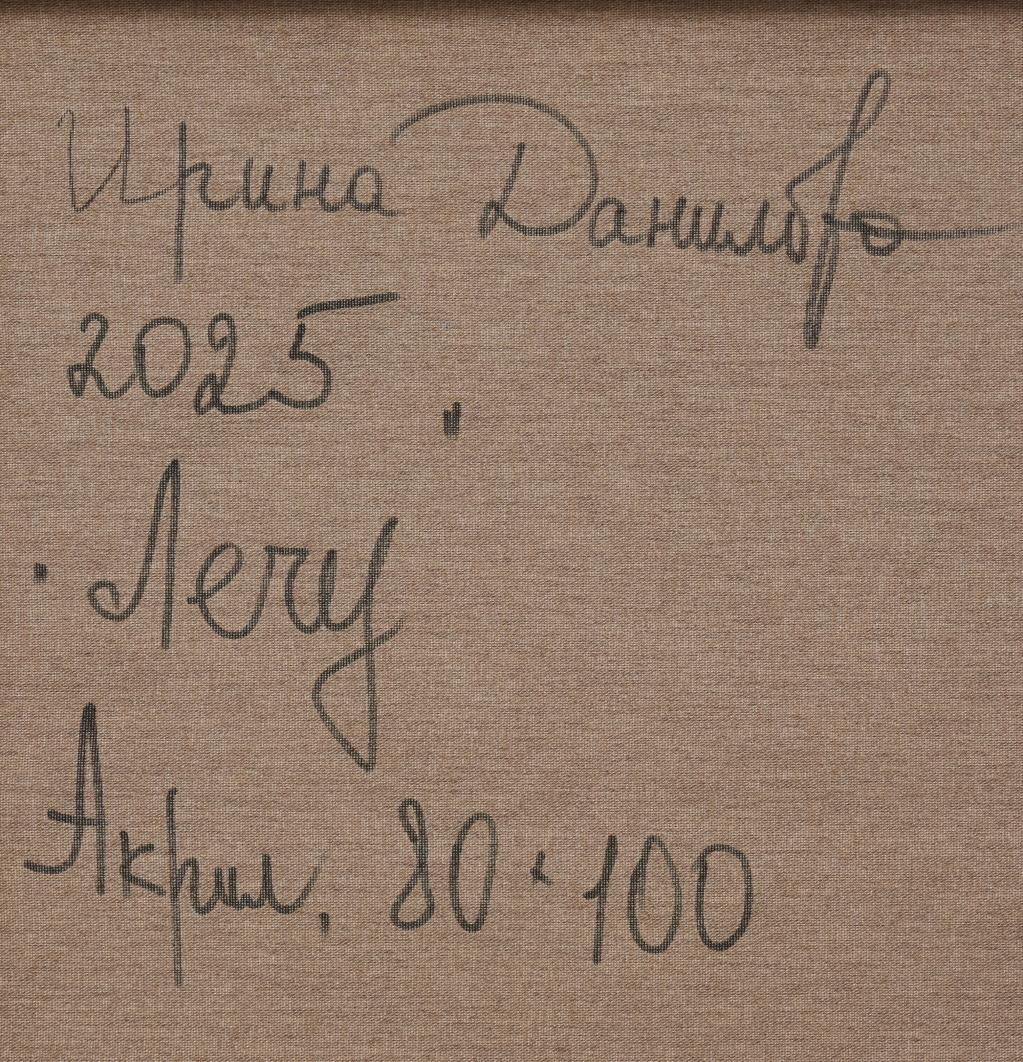 Ирина Данилова
2025
"Лечу"
Акрил, 80 × 100